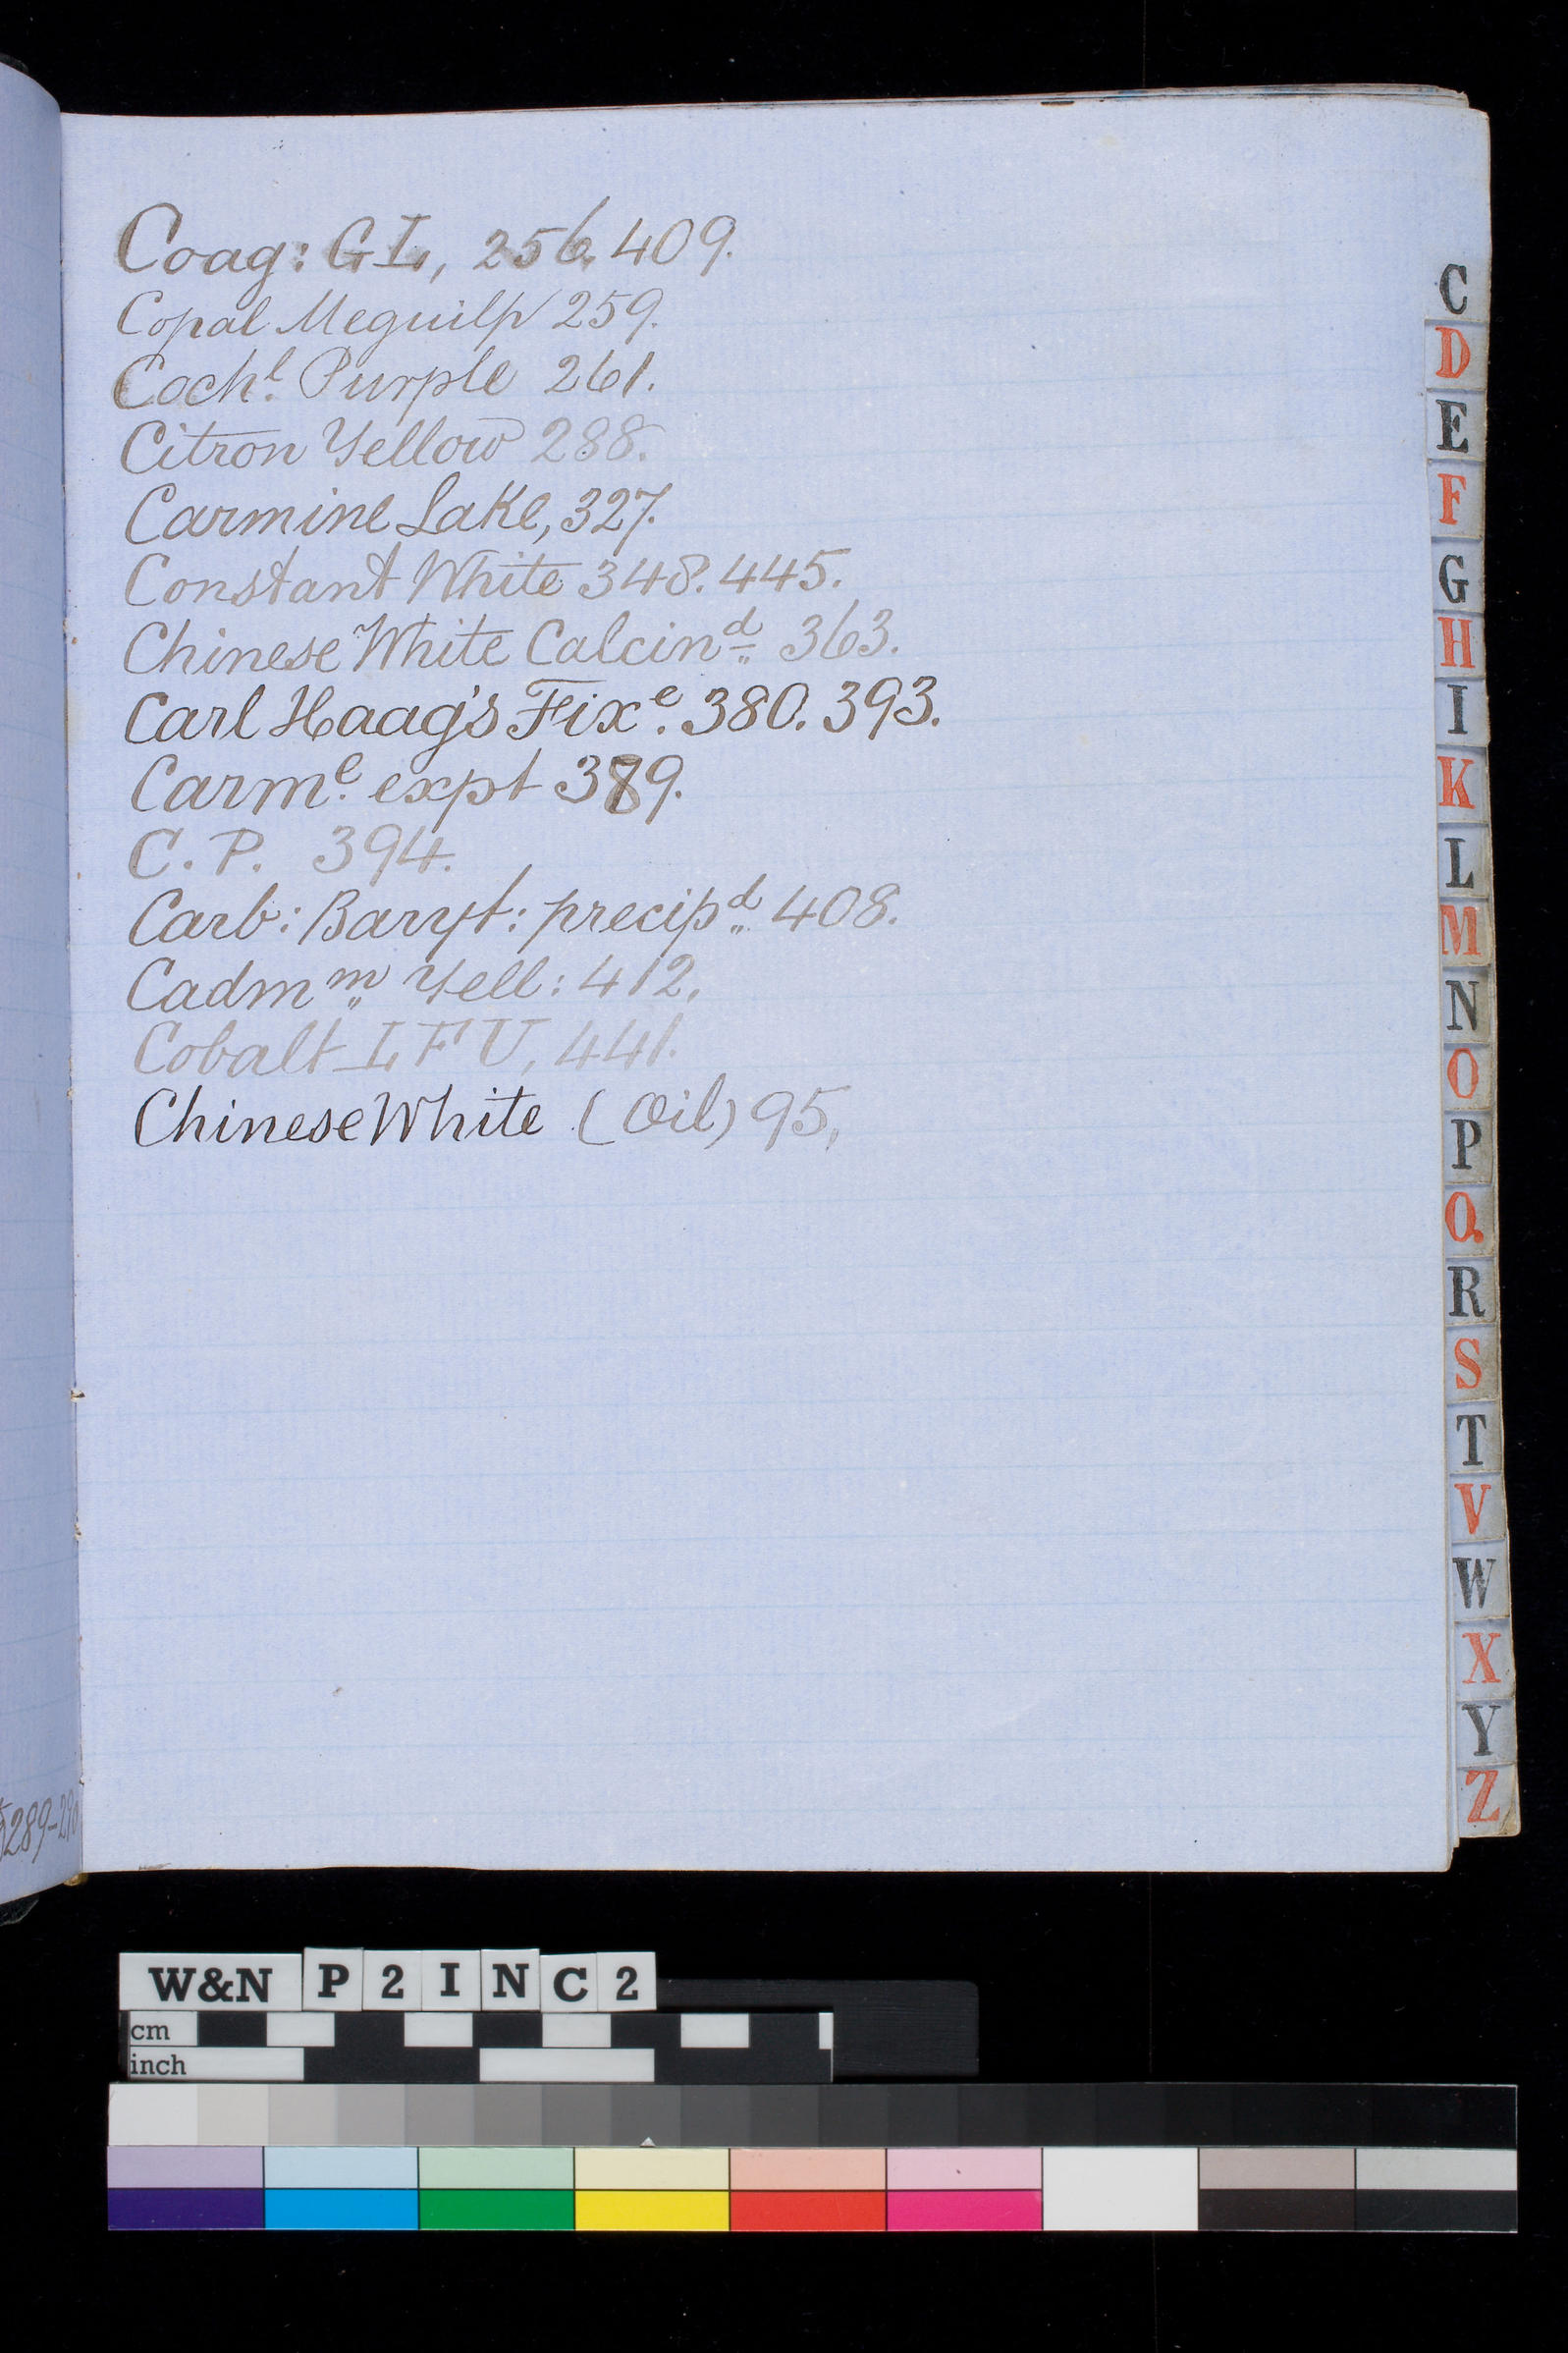 Coag: GL, 256. 409.
Copal Meguilp 259.
Cochl. Purple 261.
Citron Yellow 288.
Carmine Lake, 327.
Constant White 348. 445.
Chinese White Calcind. 363.
Carl Haag's Fixe. 380. 393.
Carme. expt 389.
C. P. 394.
Carb: Baryt: precipd. 408.
Cadmm. Yell: 412.
Cobalt L F U, 441.
Chinese White (Oil) 95,
289-290
C
D
E
F
G
H
I
K
L
M
N
O
P
Q
R
S
T
V
W
X
Y
Z
W&N P 2 I N C 2
cm
inch